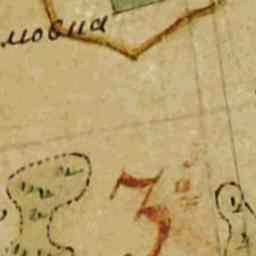 мовна
3